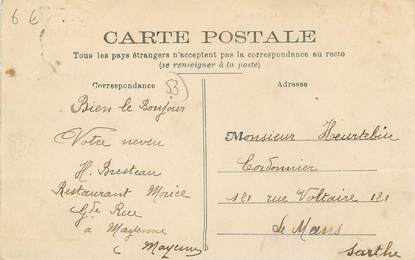 6 €
CARTE POSTALE
Tous les pays étrangers n'acceptent pas la correspondance au recto
(se renseigner à la poste)
Correspondance
53
Adresse
Bien le Bonjour
Votre neveu
H. Bresteau
Restaurant Morice
Gde Rue
à Mayenne
(Mayenne
Monsieur Heurtebise
Cordonnier
121 rue Voltaire 121
Le Mans
Sarthe